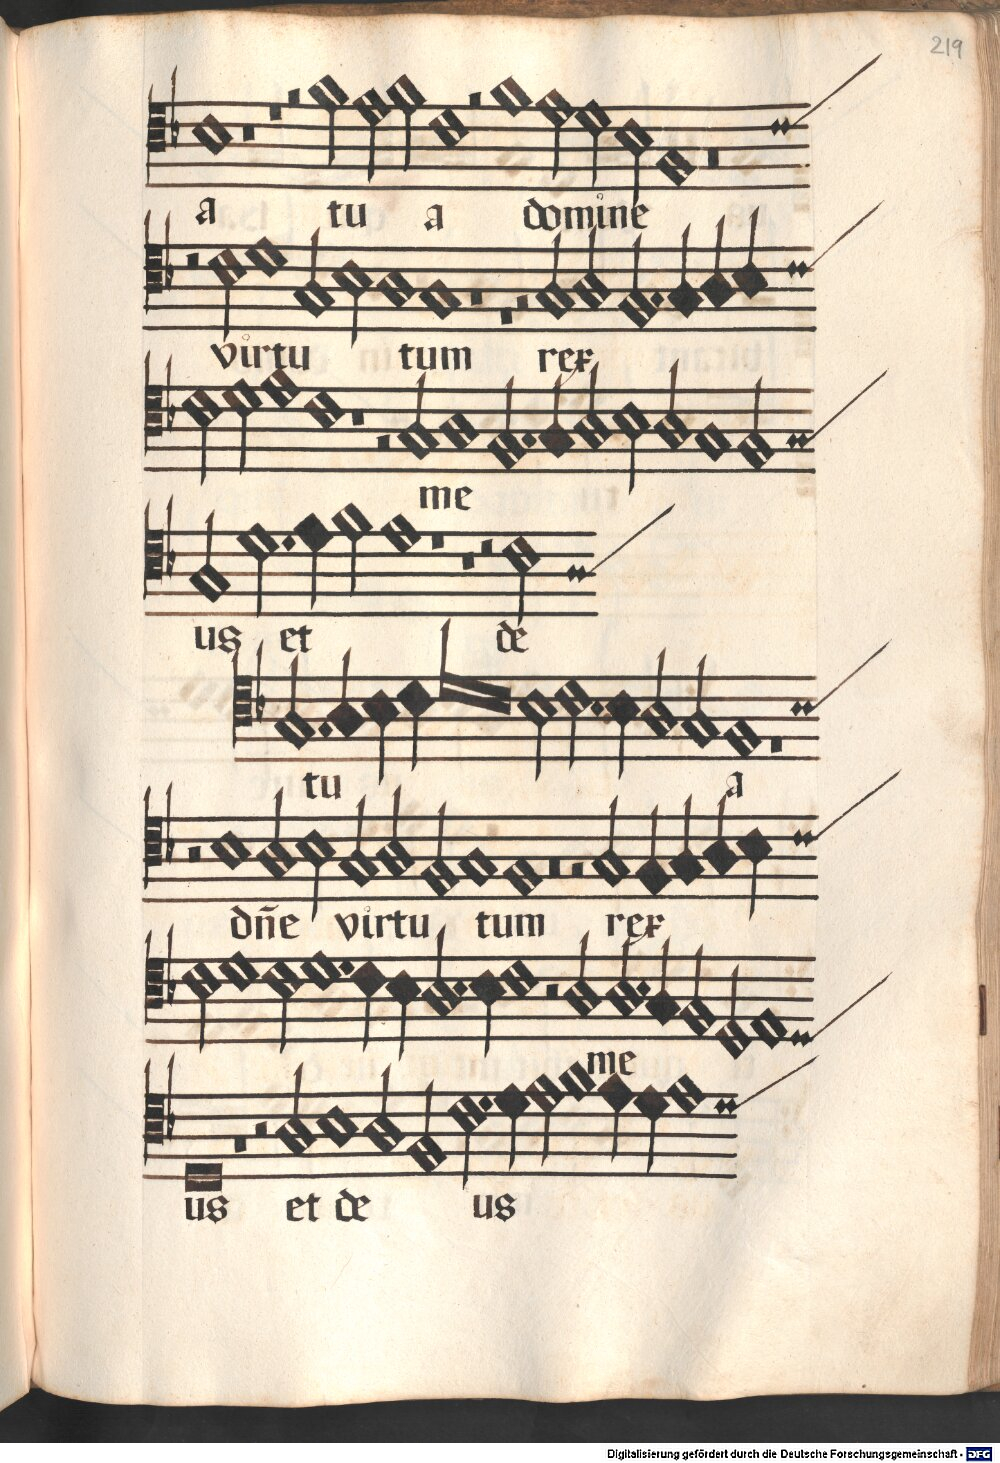 219
a tu a domine
virtu tum rex
me
us et de
tu a
dn̄e virtu tum rex
me
us et de us
Digitalisierung gefördert durch die Deutsche Forschungsgemeinschaft - DFG